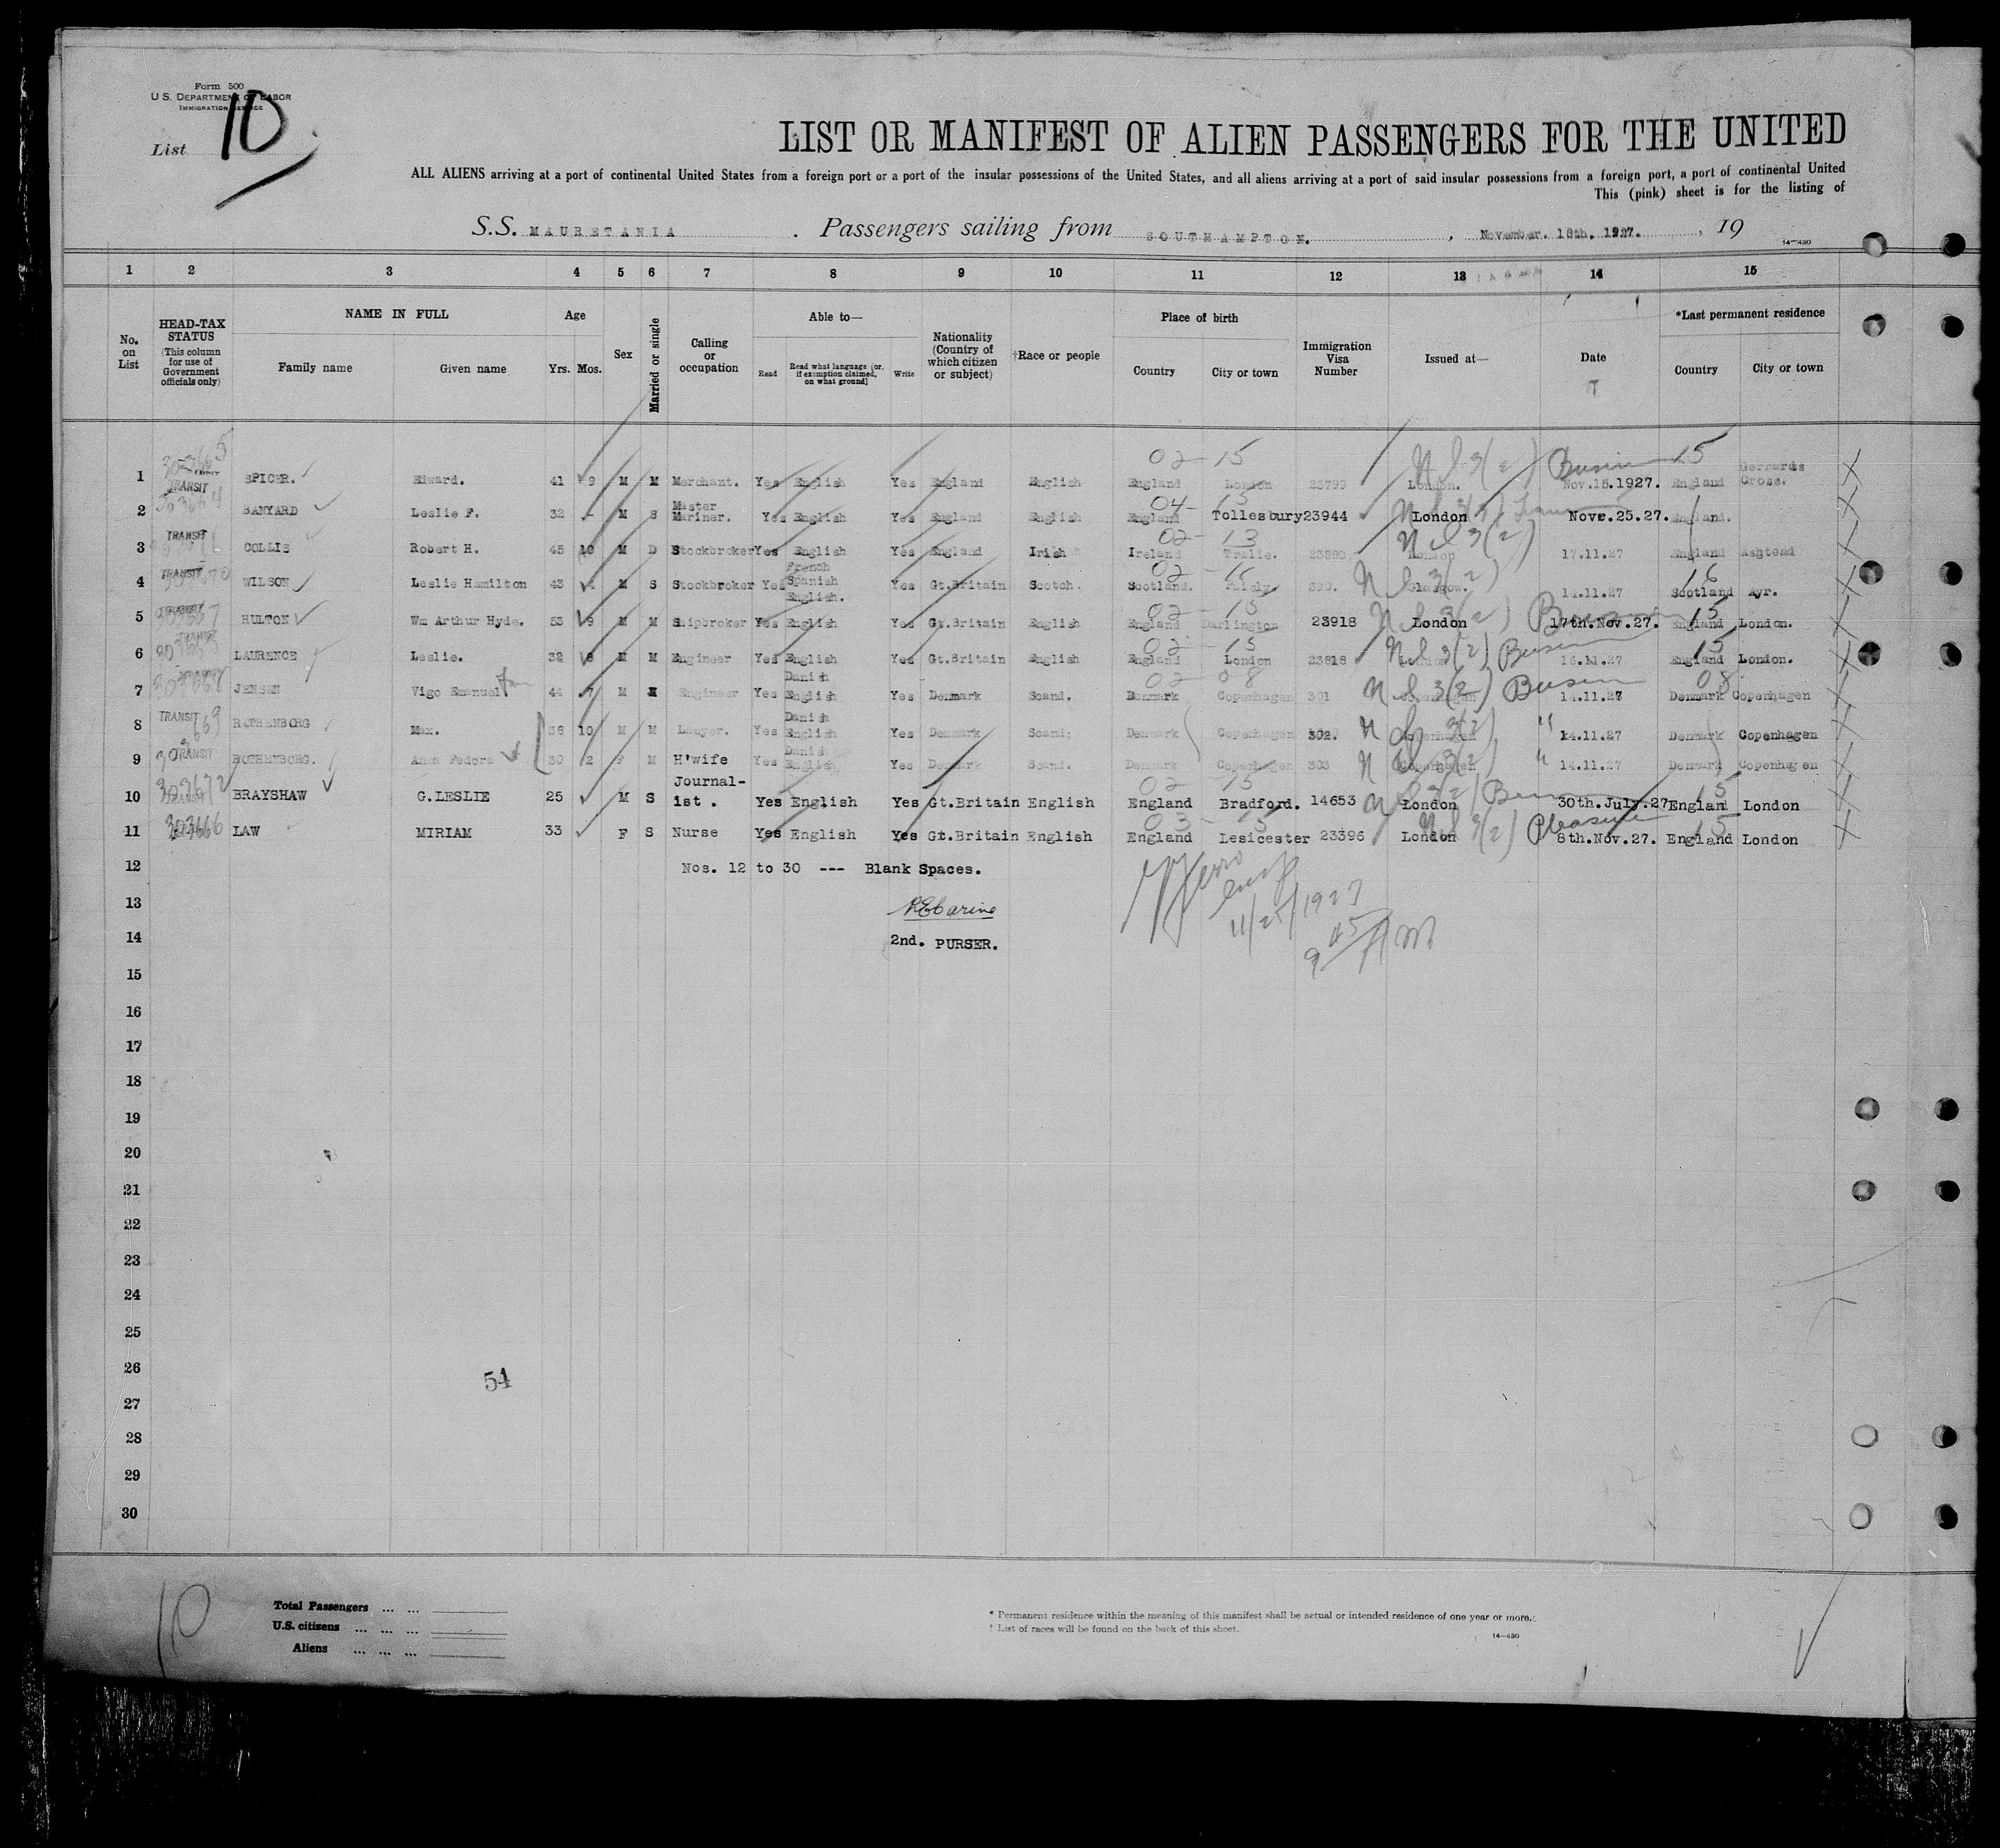 Form 500
U.S. DEPARTMENT OF LABOR
IMMIGRATION SERVICE
List 10
LIST OR MANIFEST OF ALIEN PASSENGERS FOR THE UNITED
ALL ALIENS arriving at a port of continental United States from a foreign port or a port of the insular possessions of the United States, and all aliens arriving at a port of said insular possessions from a foreign port, a port of continental United
This (pink) sheet is for the listing of
S.S. MAURETANIA . Passengers sailing from SOUTHAMPTON. , November. 18th. 1927. , 19
14—430
1 2 3 4 5 6 7 8 9 10 11 12 13 14 15
No. on List
HEAD-TAX STATUS (This column for use of Government officials only)
NAME IN FULL Family name Given name
Age Yrs. Mos.
Sex
Married or single
Calling or occupation
Able to— Read Read what language [or, if exemption claimed, on what ground] Write
Nationality (Country of which citizen or subject)
†Race or people
Place of birth Country City or town
Immigration Visa Number
Issued at—
Date
*Last permanent residence Country City or town
02-15 15
1 TRANSIT SPICER. Edward. 41 9 M M Merchant. Yes English Yes England English England London 23799 London. Nov.15.1927. England Gerrards Cross.
04-15
2 BANYARD Leslie F. 32 - M S Master Mariner. Yes English Yes England English England Tollesbury 23944 London Nov.25.27. England.
02-13
3 TRANSIT COLLIS Robert H. 45 10 M D Stockbroker Yes English Yes England Irish Ireland Tralie. London 17.11.27 England Ashtead
02-15 16
4 TRANSIT WILSON Leslie Hamilton 43 M S Stockbroker Yes French Spanish English. Yes Gt.Britain Scotch. Scotland. Glasgow. 14.11.27 Scotland Ayr.
02-15 Business 15
5 HULTON Wm Arthur Hyde. 53 9 M M Shipbroker Yes English Yes Gt.Britain English England Darlington 23918 London 17th.Nov.27. England London.
02-15 Business 15
6 TRANSIT LAURENCE Leslie. 32 8 M M Engineer Yes English Yes Gt.Britain English England London 23818 London 16.11.27 England London.
02-08 08
7 JENSEN Vigo Emanuel 44 7 M M Engineer Yes Danish English Yes Denmark Scand. Denmark Copenhagen 301 Copenhagen 14.11.27 Denmark Copenhagen
8 TRANSIT ROTHENBORG Max. 36 10 M M Lawyer. Yes Danish English Yes Denmark Scand. Denmark Copenhagen 302. Copenhagen " 14.11.27 Denmark Copenhagen
9 TRANSIT ROTHENBORG. Anna Fedora 30 2 F M H'wife Yes Danish English Yes Denmark Scand. Denmark Copenhagen 303 Copenhagen " 14.11.27 Denmark Copenhagen
02-15 15
10 303672 BRAYSHAW G.LESLIE 25 M S Journal-ist . Yes English Yes Gt.Britain English England Bradford. 14653 London 30th.July.27 England London
03-15 Pleasure 15
11 303666 LAW MIRIAM 33 F S Nurse Yes English Yes Gt.Britain English England Lesicester 23396 London 8th.Nov.27. England London
12 Nos. 12 to 30 --- Blank Spaces.
13
14 2nd. PURSER.
11/25/1927
9 45 AM
15
16
17
18
19
20
21
22
23
24
25
26
54
27
28
29
30
10
Total Passengers ... ...
U.S. citizens ... ... ...
Aliens ... ... ...
* Permanent residence within the meaning of this manifest shall be actual or intended residence of one year or more.
† List of races will be found on the back of this sheet.
14—430